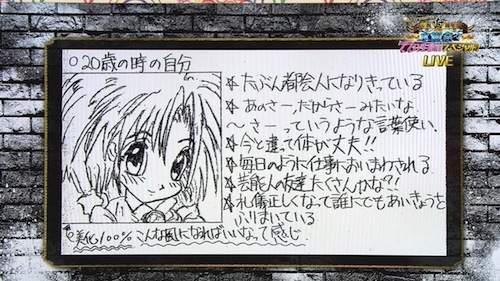 ○20歳の時の自分
☆たぶん都会人になりきっている
☆あのさー、だからさーみたいな
〜さーっていうような言葉使い。
☆今と違って体が丈夫!!
☆毎日のように仕事においまわされる
☆芸能人の友達たくさんかな?!
☆礼儀正しくなって誰にでもあいきょうを
ふりまいている
美化100%こんな風になればいいなって感じ
LIVE